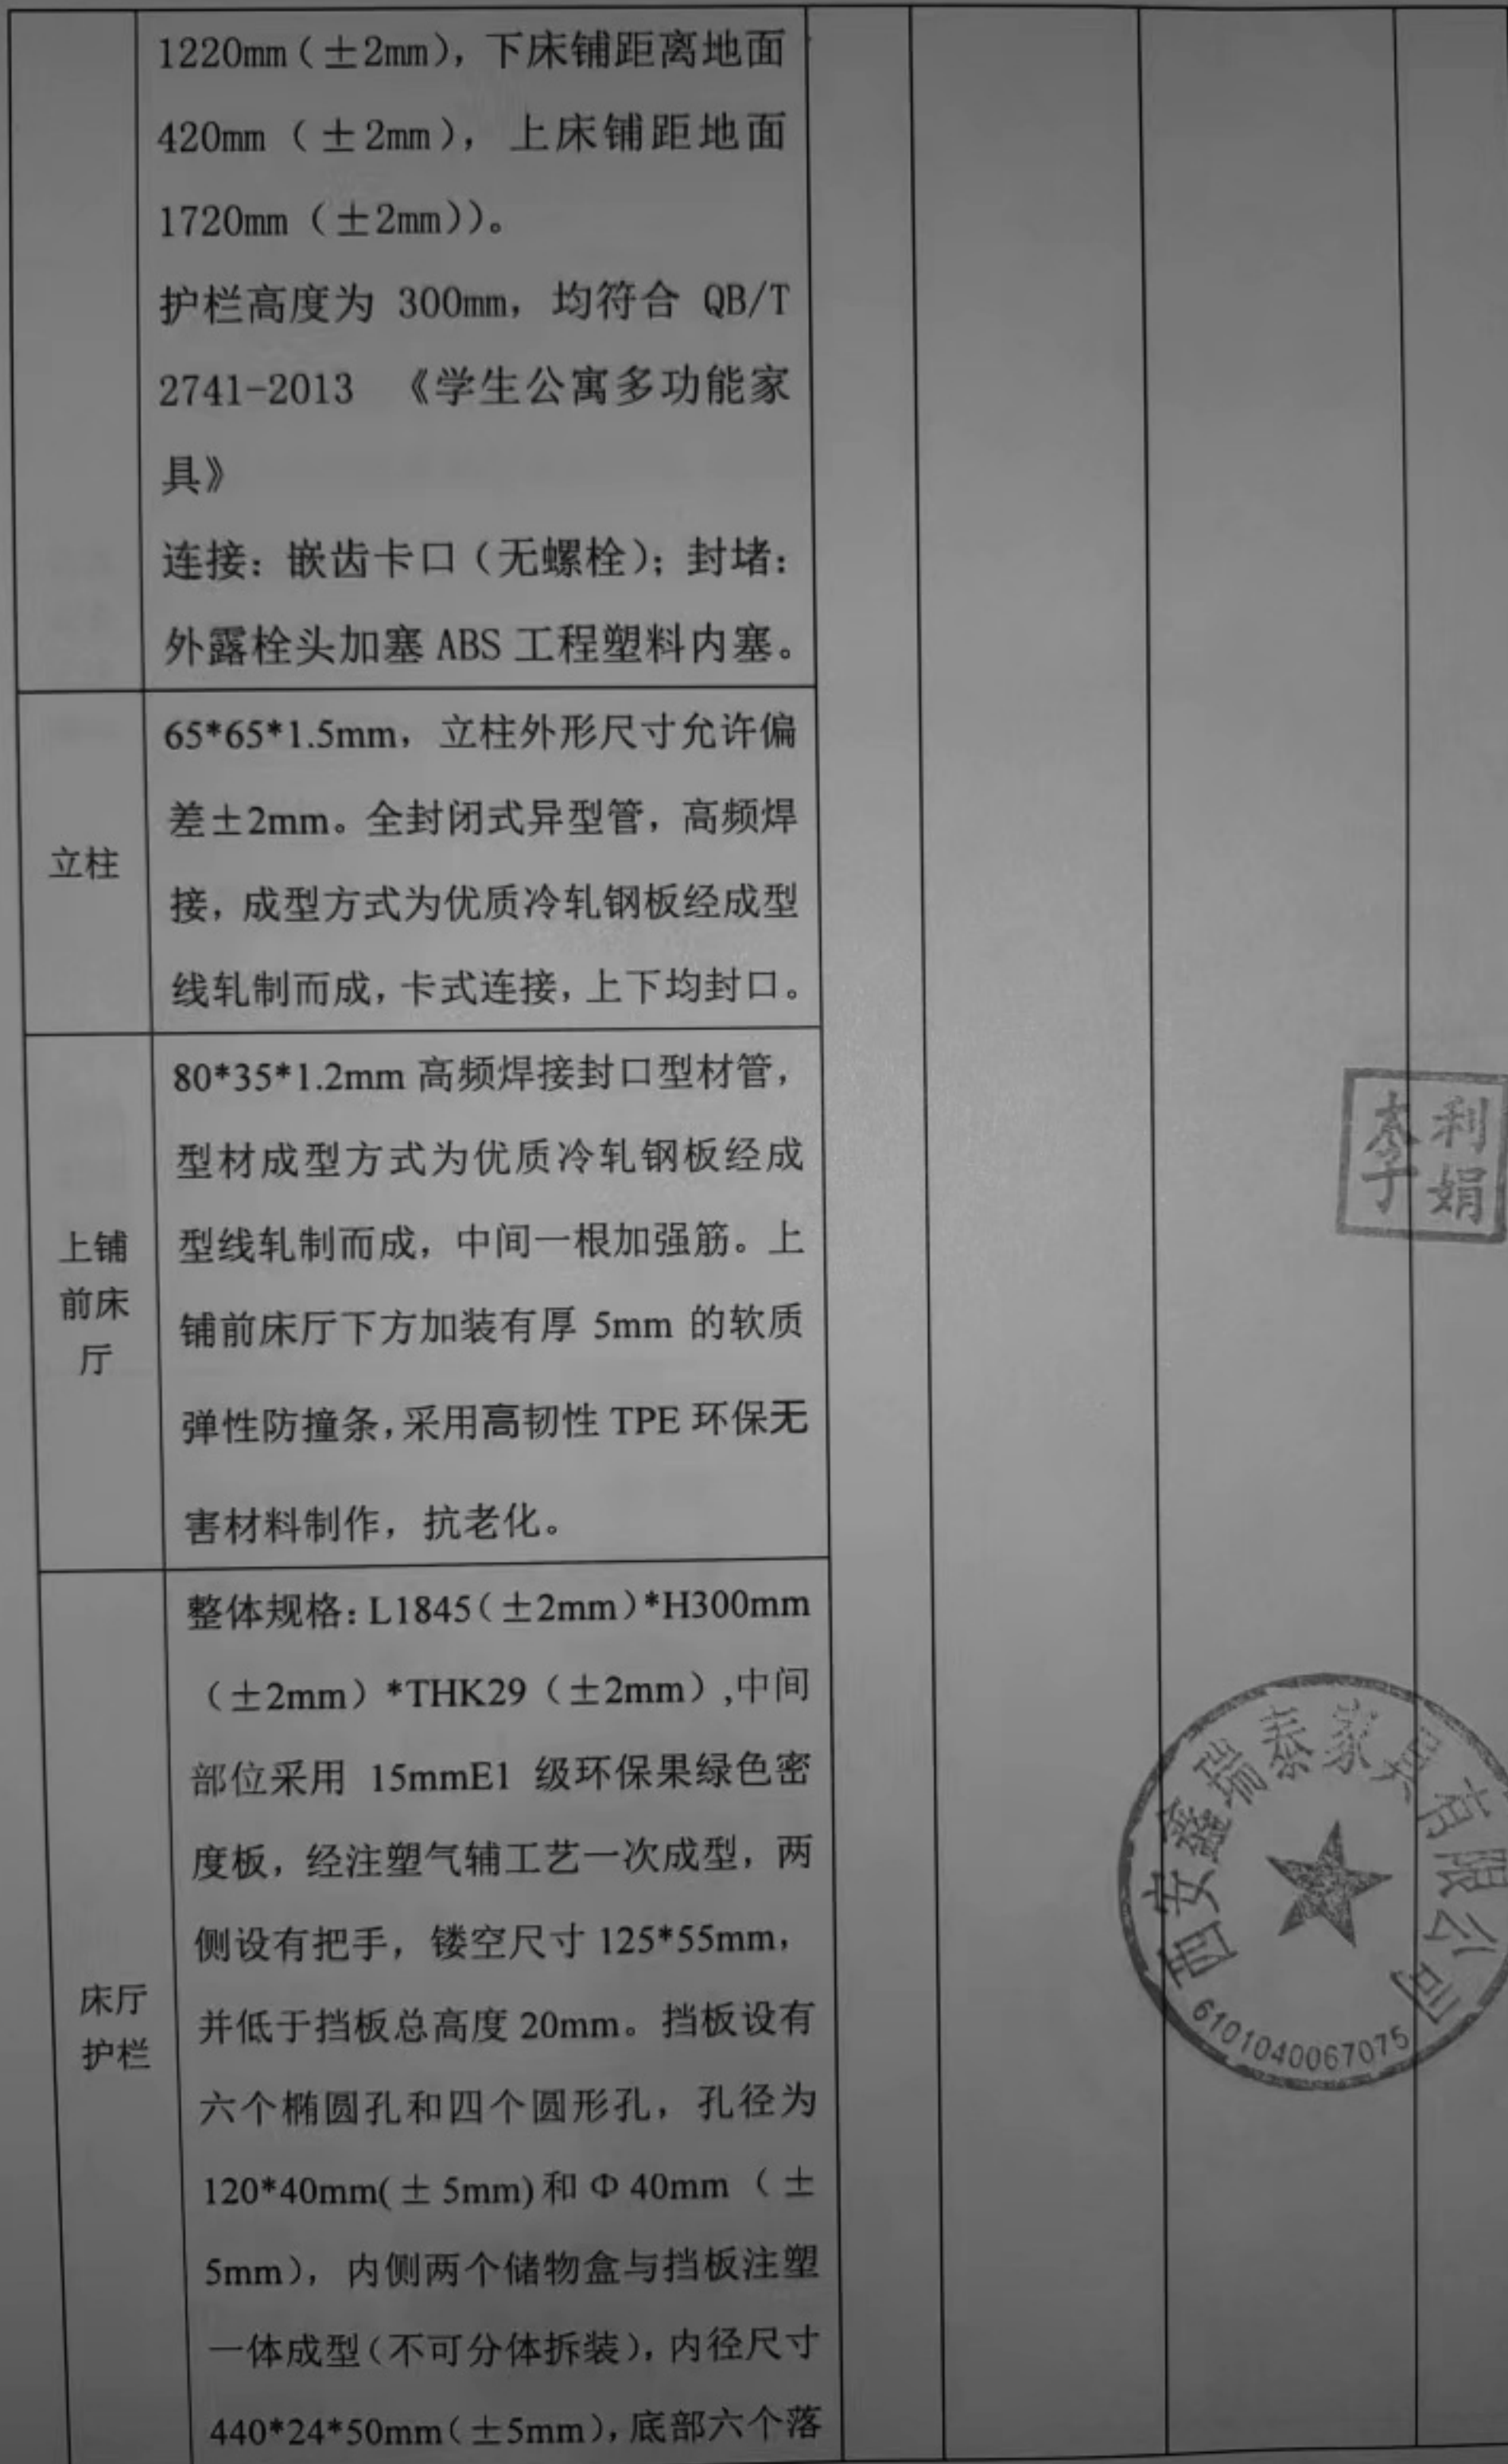 1220mm（±2mm），下床铺距离地面
420mm（±2mm），上床铺距地面
1720mm（±2mm））。
护栏高度为 300mm，均符合 QB/T
2741-2013 《学生公寓多功能家
具》
连接：嵌齿卡口（无螺栓）；封堵：
外露栓头加塞 ABS 工程塑料内塞。
立柱
65*65*1.5mm，立柱外形尺寸允许偏
差±2mm。全封闭式异型管，高频焊
接，成型方式为优质冷轧钢板经成型
线轧制而成，卡式连接，上下均封口。
上铺
前床
厅
80*35*1.2mm 高频焊接封口型材管，
型材成型方式为优质冷轧钢板经成
型线轧制而成，中间一根加强筋。上
铺前床厅下方加装有厚 5mm 的软质
弹性防撞条，采用高韧性 TPE 环保无
害材料制作，抗老化。
床厅
护栏
整体规格：L1845（±2mm）*H300mm
（±2mm）*THK29（±2mm）,中间
部位采用 15mmE1 级环保果绿色密
度板，经注塑气辅工艺一次成型，两
侧设有把手，镂空尺寸 125*55mm，
并低于挡板总高度 20mm。挡板设有
六个椭圆孔和四个圆形孔，孔径为
120*40mm(±5mm)和Φ40mm（±
5mm），内侧两个储物盒与挡板注塑
一体成型（不可分体拆装），内径尺寸
440*24*50mm（±5mm），底部六个落
李利娟
西安鑫瑞泰家具有限公司
6101040067075